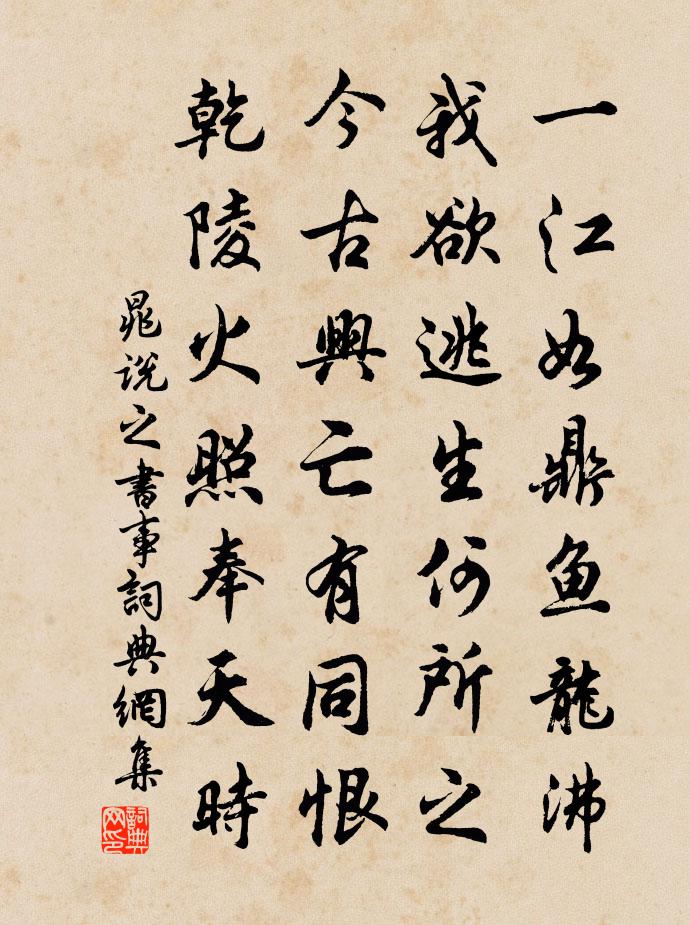 一江如鼎鱼龍沸
我欲逃生何所之
今古興亡有同恨
乾陵火照奉天時
晁说之書事詞典網集
詞典网印